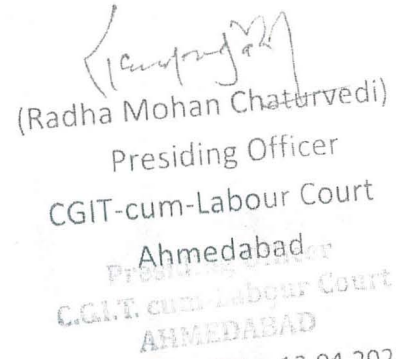 (Radha Mohan Chaturvedi)
Presiding Officer
CGIT-cum-Labour Court
Ahmedabad
Presiding Officer
C.G.I.T. cum Labour Court
AHMEDABAD